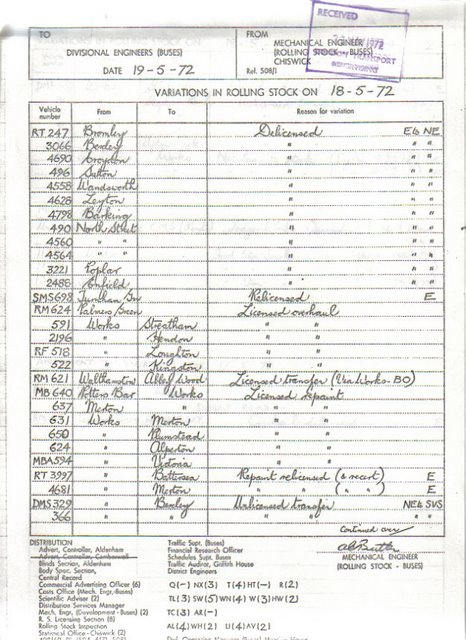 RECEIVED
1972
TRANSPORT
TO
DIVISIONAL ENGINEERS (BUSES)
DATE 19-5-72
FROM
MECHANICAL ENGINEER
(ROLLING STOCK - BUSES)
CHISWICK
Ref. 508/1
VARIATIONS IN ROLLING STOCK ON 18-5-72
Vehicle number From To Reason for variation
RT 247 Bromley Delicensed E& NE
3066 Bexley " " "
4690 Croydon " " "
496 Sutton " " "
4558 Wandsworth " " "
4628 Leyton " " "
4798 Barking " " "
490 North Street " " "
4560 " " " " "
4564 " " " " "
3221 Poplar " " "
2488 Enfield " " "
SMS 698 Turnham Gn Relicensed E
RM 624 Palmers Green Licensed overhaul
591 Works Streatham " "
2196 " Hendon " "
RF 518 " Loughton " "
522 " Kingston " "
RM 621 Walthamstow Abbey Wood Licensed transfer (Via Works-BO)
MB 640 Potters Bar Works Licensed repaint
637 Merton " " "
631 Works Merton " "
650 " Plumstead " "
624 " Alperton " "
MBA 594 " Victoria " "
RT 3997 Battersea Repaint relicensed (& recert) E
4681 Merton " " ( " " ) E
DMS 329 Bexley Unlicensed transfer NE& SVS
366 " " " "
Continued over
MECHANICAL ENGINEER
(ROLLING STOCK - BUSES)
DISTRIBUTION
Advert. Controller, Aldenham
Advert. Controller, Camberwell
Blinds Section, Aldenham
Body Spec. Section,
Central Record
Commercial Advertising Officer (6)
Costs Office (Mech. Engr.-Buses)
Scientific Adviser (2)
Distribution Services Manager
Mech. Engr. (Development - Buses) (2)
R. S. Licensing Section (8)
Rolling Stock Inspection
Statistical Office - Chiswick (2)
Traffic Supt. (Buses)
Financial Research Officer
Schedules Supt. Buses
Traffic Auditor, Griffith House
District Engineers
Q(-) NX(3) T(4) HT(-) R(2)
TL(3) SW(5) WN(4) W(3) HW(2)
TC(3) AR(-)
AL(4) WH(2) U(4) AV(2)